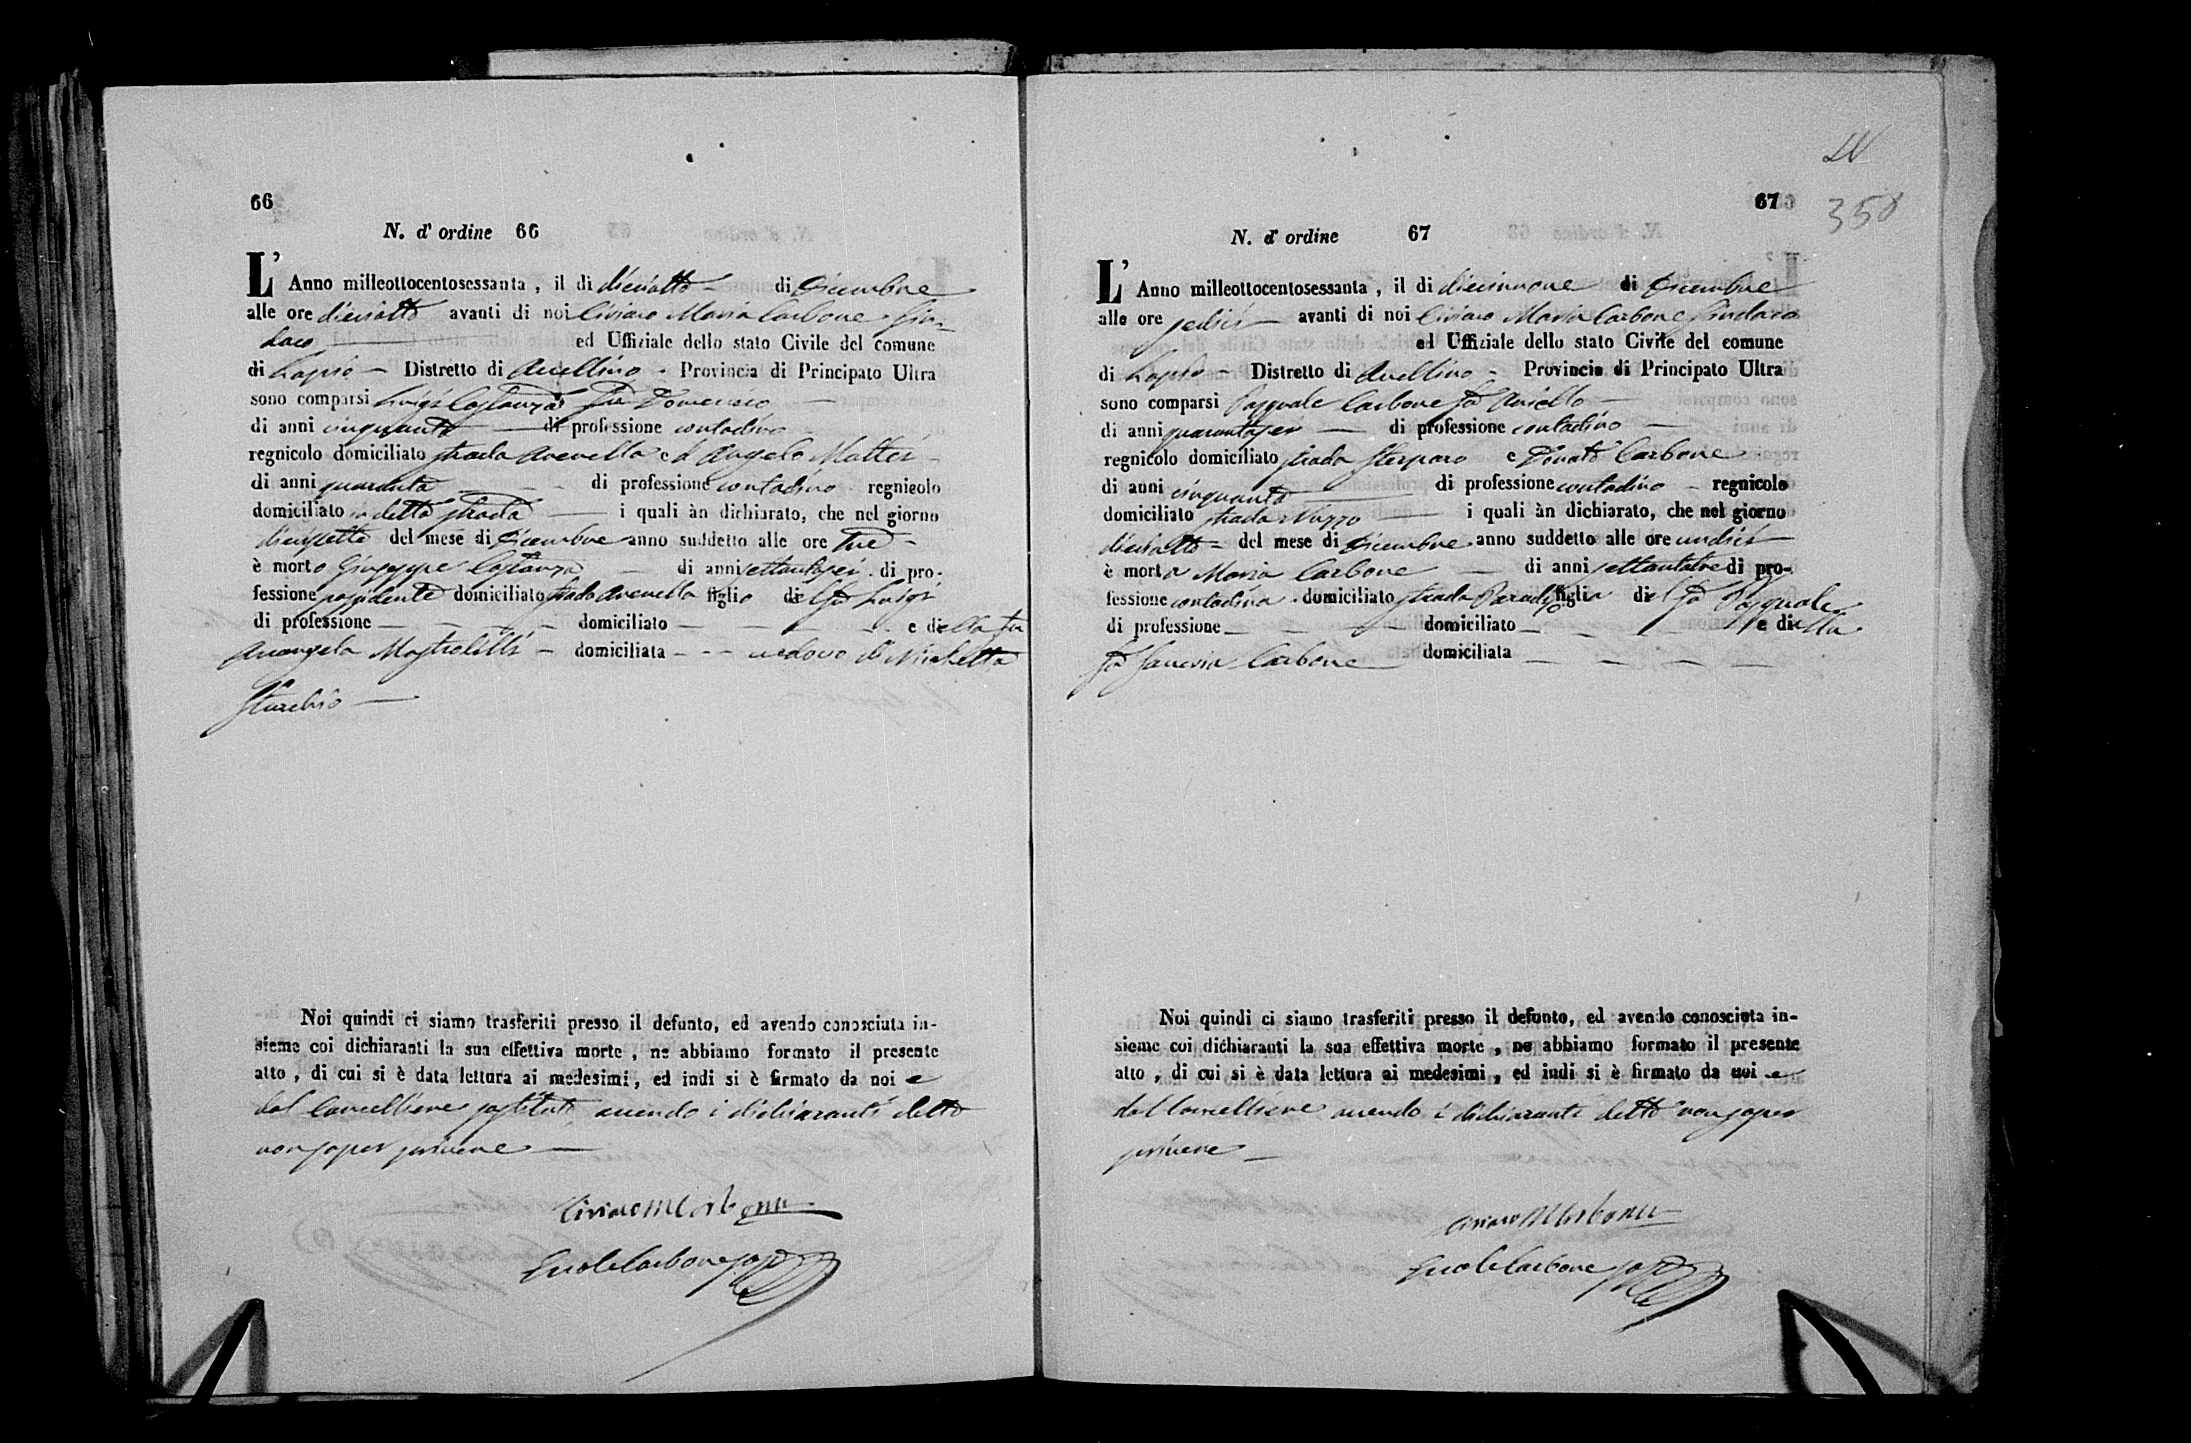 66
N. d' ordine 66
L' Anno milleottocentosessanta, il di dieciotto di Dicembre
alle ore dieciotto avanti di noi Ciriaco Maria Carbone Sin-
daco ed Uffiziale dello stato Civile del comune
di Lapio Distretto di Avellino Provincia di Principato Ultra
sono comparsi Luigi Costanza fu Domenico
di anni cinquanta di professione contadino
regnicolo domiciliato strada Avenella ed Angelo Mattei
di anni quaranta di professione contadino regnicolo
domiciliato in detta strada i quali àn dichiarato, che nel giorno
diecisette del mese di Dicembre anno suddetto alle ore tre
è morto Giuseppe Costanza di anni settantasei di pro-
fessione possidente domiciliato strada Avenella figlio del fu Luigi
di professione domiciliato e della fu
Arcangela Mastrolilli domiciliata vedovo di Nicoletta
Sturchio
Noi quindi ci siamo trasferiti presso il defunto, ed avendo conosciuta in-
sieme coi dichiaranti la sua effettiva morte, ne abbiamo formato il presente
atto, di cui si è data lettura ai medesimi, ed indi si è firmato da noi e
dal Cancelliere sostituto avendo i dichiaranti detto
non saper scrivere
Ciriaco M Carbone
Carbone sost
LV
67
358
N. d' ordine 67
L' Anno milleottocentosessanta, il di diecinnove di Dicembre
alle ore sedici avanti di noi Ciriaco Maria Carbone Sindaco
ed Uffiziale dello stato Civile del comune
di Lapio Distretto di Avellino Provincia di Principato Ultra
sono comparsi Pasquale Carbone fu Aniello
di anni quarantasei di professione contadino
regnicolo domiciliato strada Sterparo e Donato Carbone
di anni cinquanta di professione contadino regnicolo
domiciliato strada Nuzzo i quali àn dichiarato, che nel giorno
dieciotto del mese di Dicembre anno suddetto alle ore undici
è morta Maria Carbone di anni settantatre di pro-
fessione contadina domiciliato strada Paradiso figlia del fu Pasquale
di professione domiciliato e della
fu Saveria Carbone domiciliata
Noi quindi ci siamo trasferiti presso il defunto, ed avendo conosciuta in-
sieme coi dichiaranti la sua effettiva morte, ne abbiamo formato il presente
atto, di cui si è data lettura ai medesimi, ed indi si è firmato da noi e
dal Cancelliere avendo i dichiaranti detto non saper
scrivere
Ciriaco M Carbone
Carbone sost